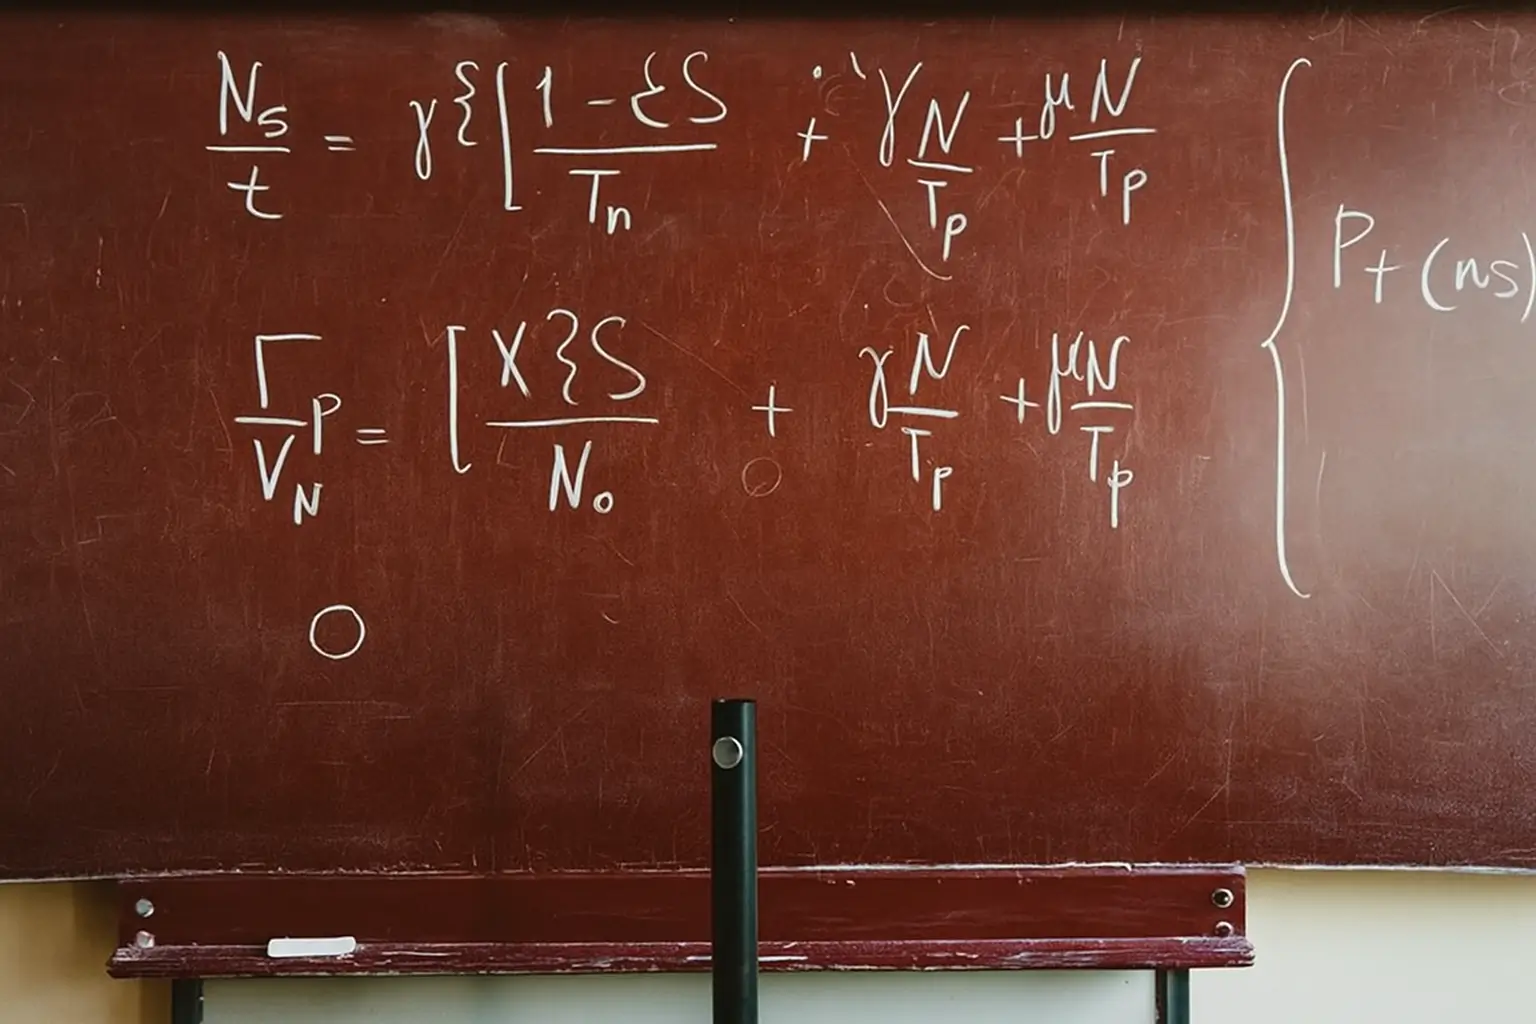 Ns/t = γ{[(1 - ξS)/Tn + γN/Tp + μN/Tp
Γ/VN p = [(X}S)/No + γN/Tp + μN/Tp
{ P+ (ns)